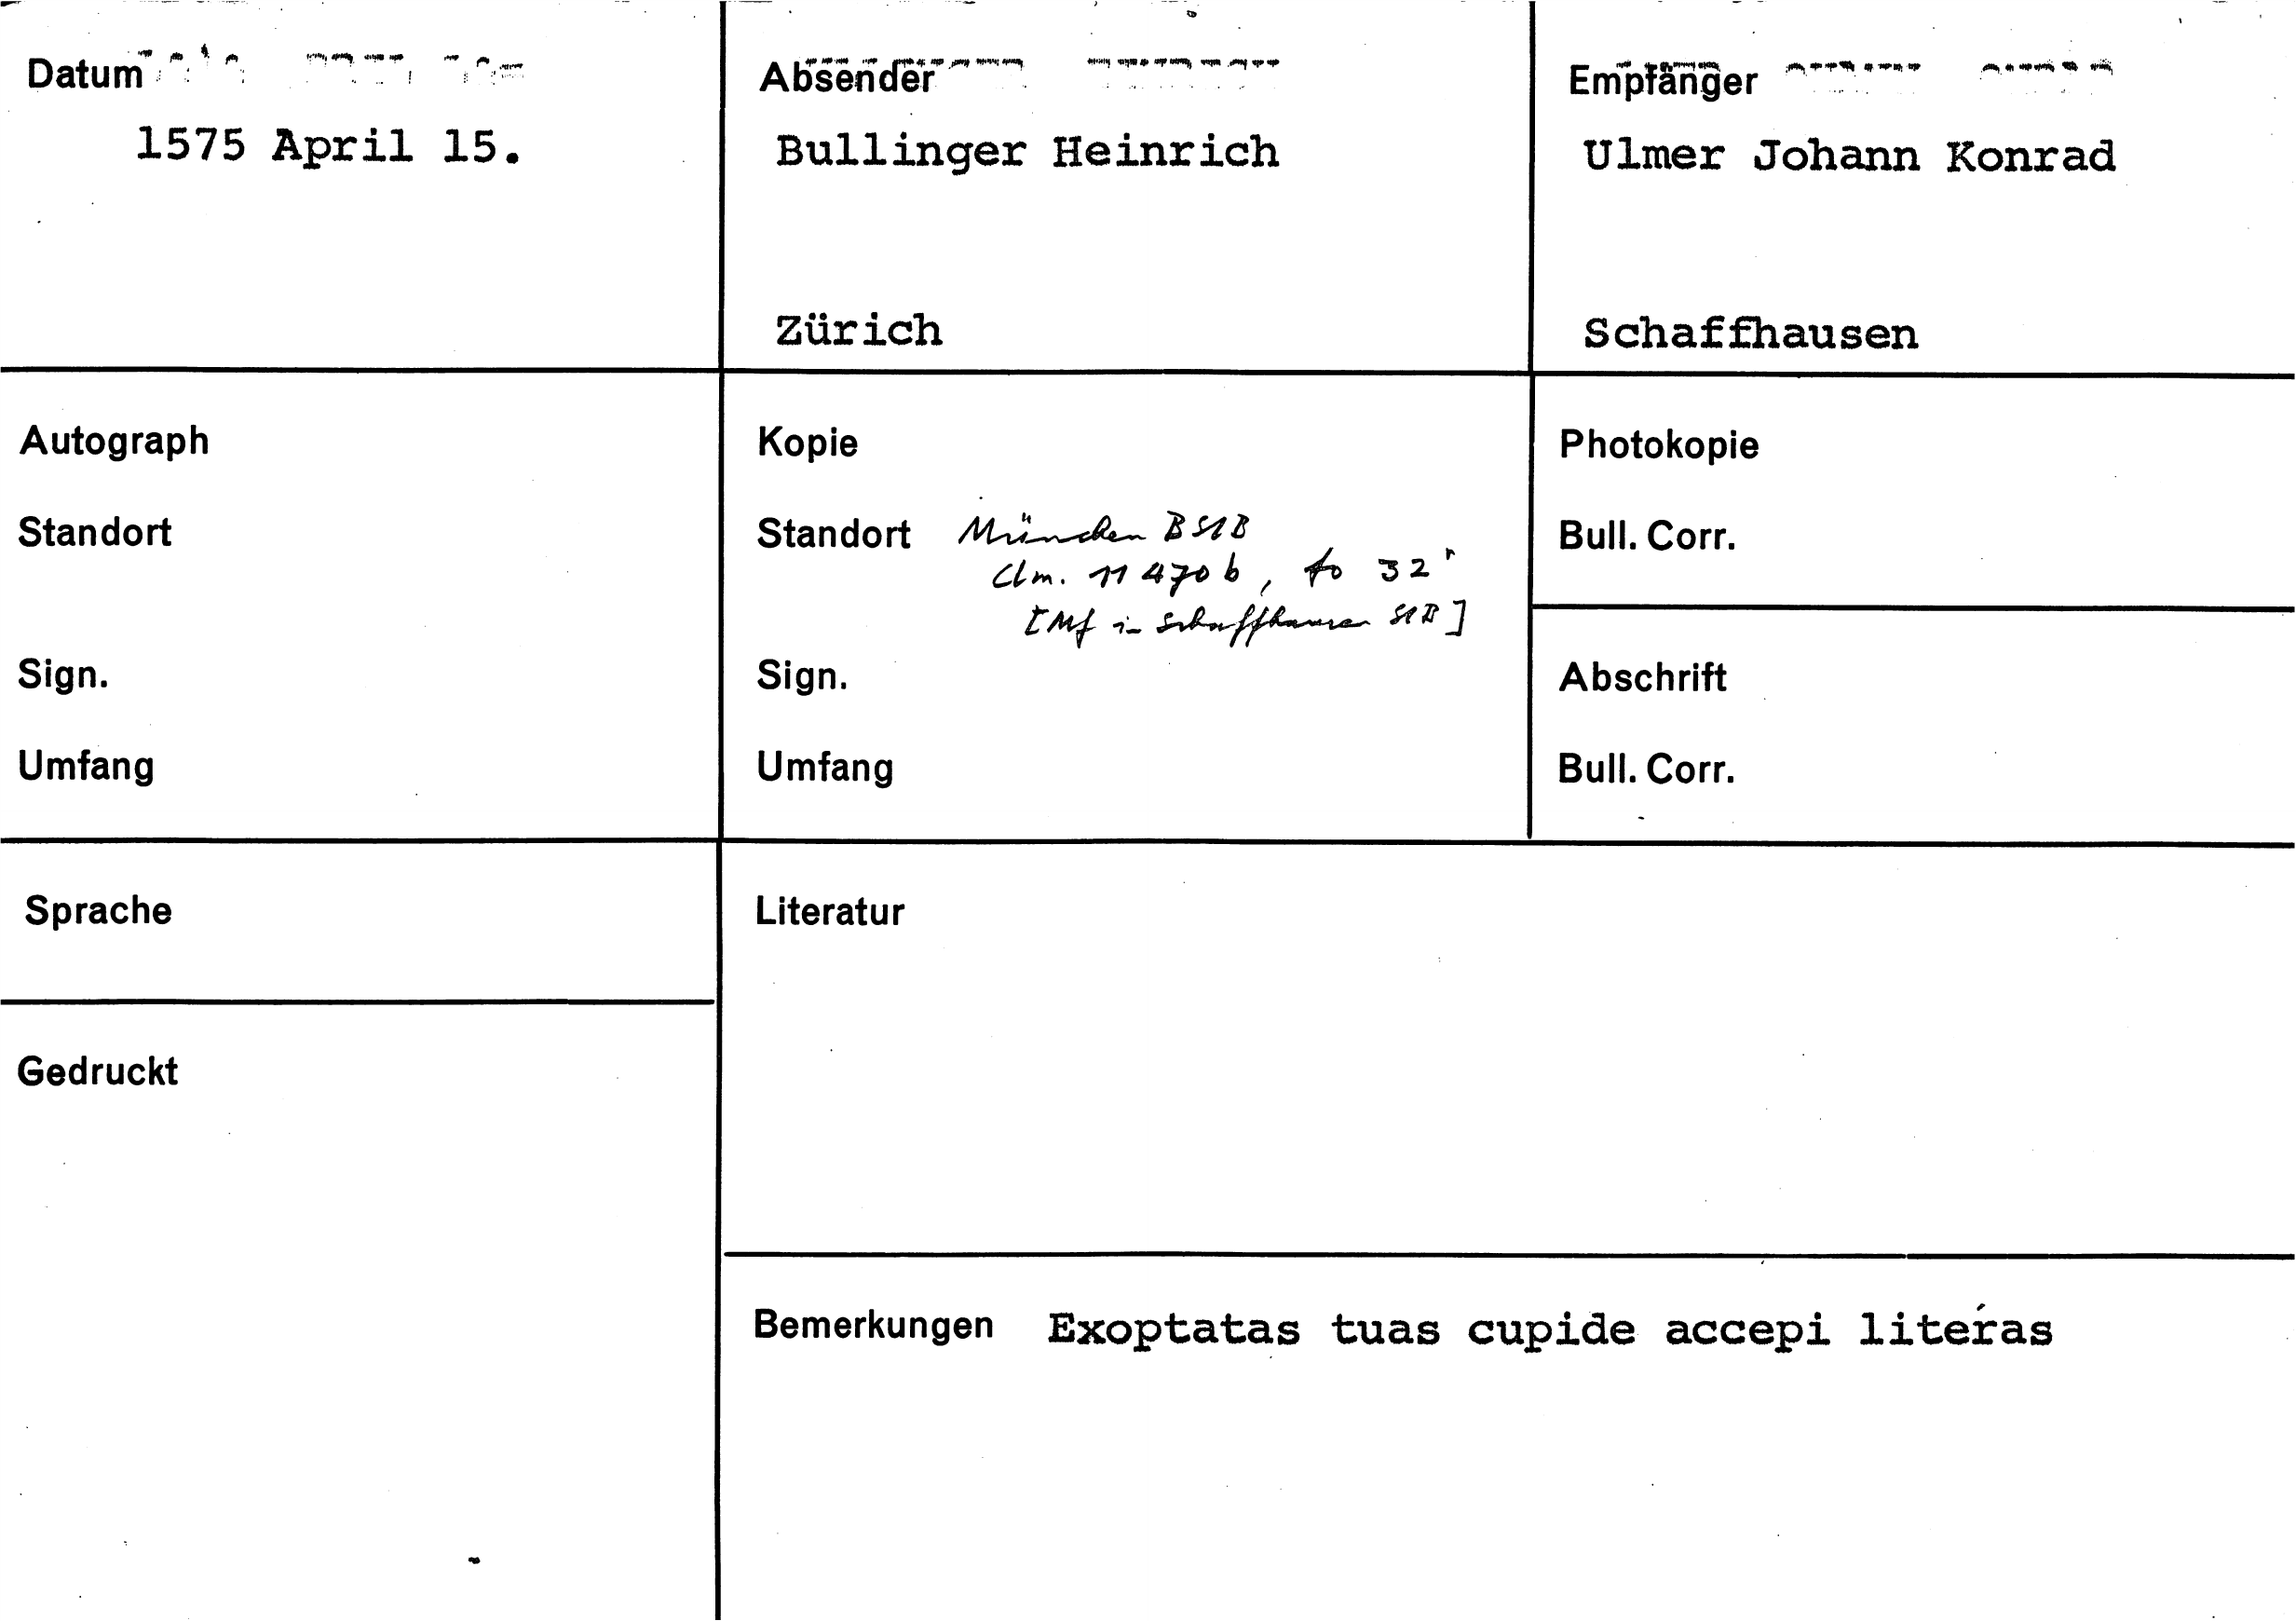 Datum
1575 April 15.
Absender
Bullinger Heinrich
Zürich
Empfänger
Ulmer Johann Konrad
Schaffhausen
Autograph
Standort
Sign.
Umfang
Kopie
Standort München BStB
Clm. 11 470 b, fo 32r
[Mf in Schaffhausen StB]
Sign.
Umfang
Photokopie
Bull. Corr.
Abschrift
Bull. Corr.
Sprache
Gedruckt
Literatur
Bemerkungen Exoptatas tuas cupide accepi literas